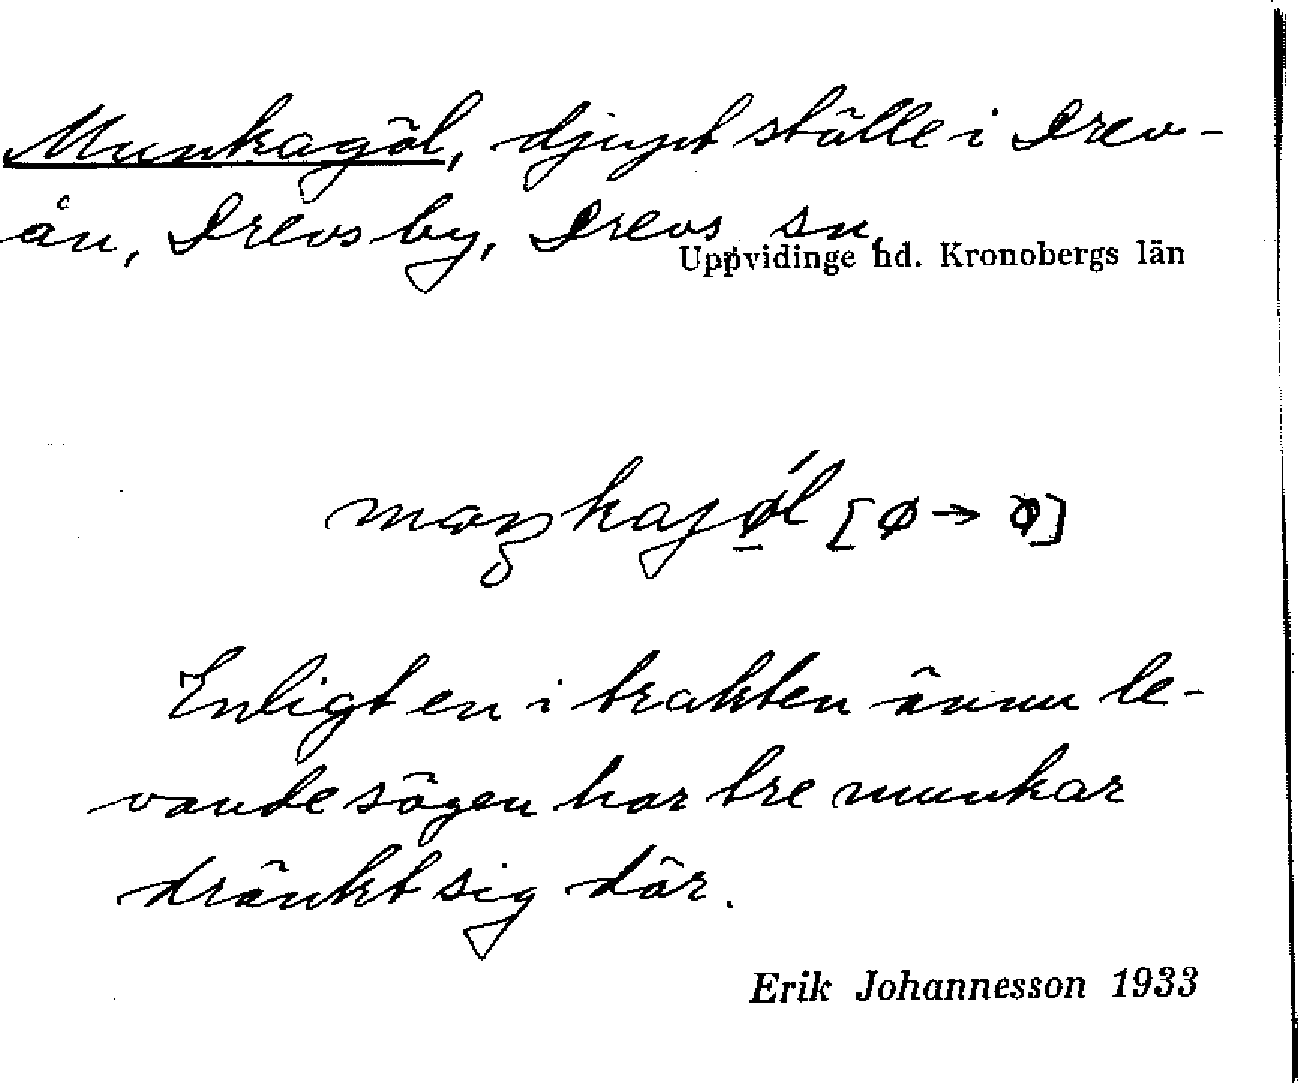 Munkagöl, djupt ställe i Drev-
ån, Drevs by, Drevs sn,
Uppvidinge hd. Kronobergs län
[ø →
Enligt en i trakten ännu le-
vande sägen har tre munkar
dränkt sig där.
Erik Johannesson 1933